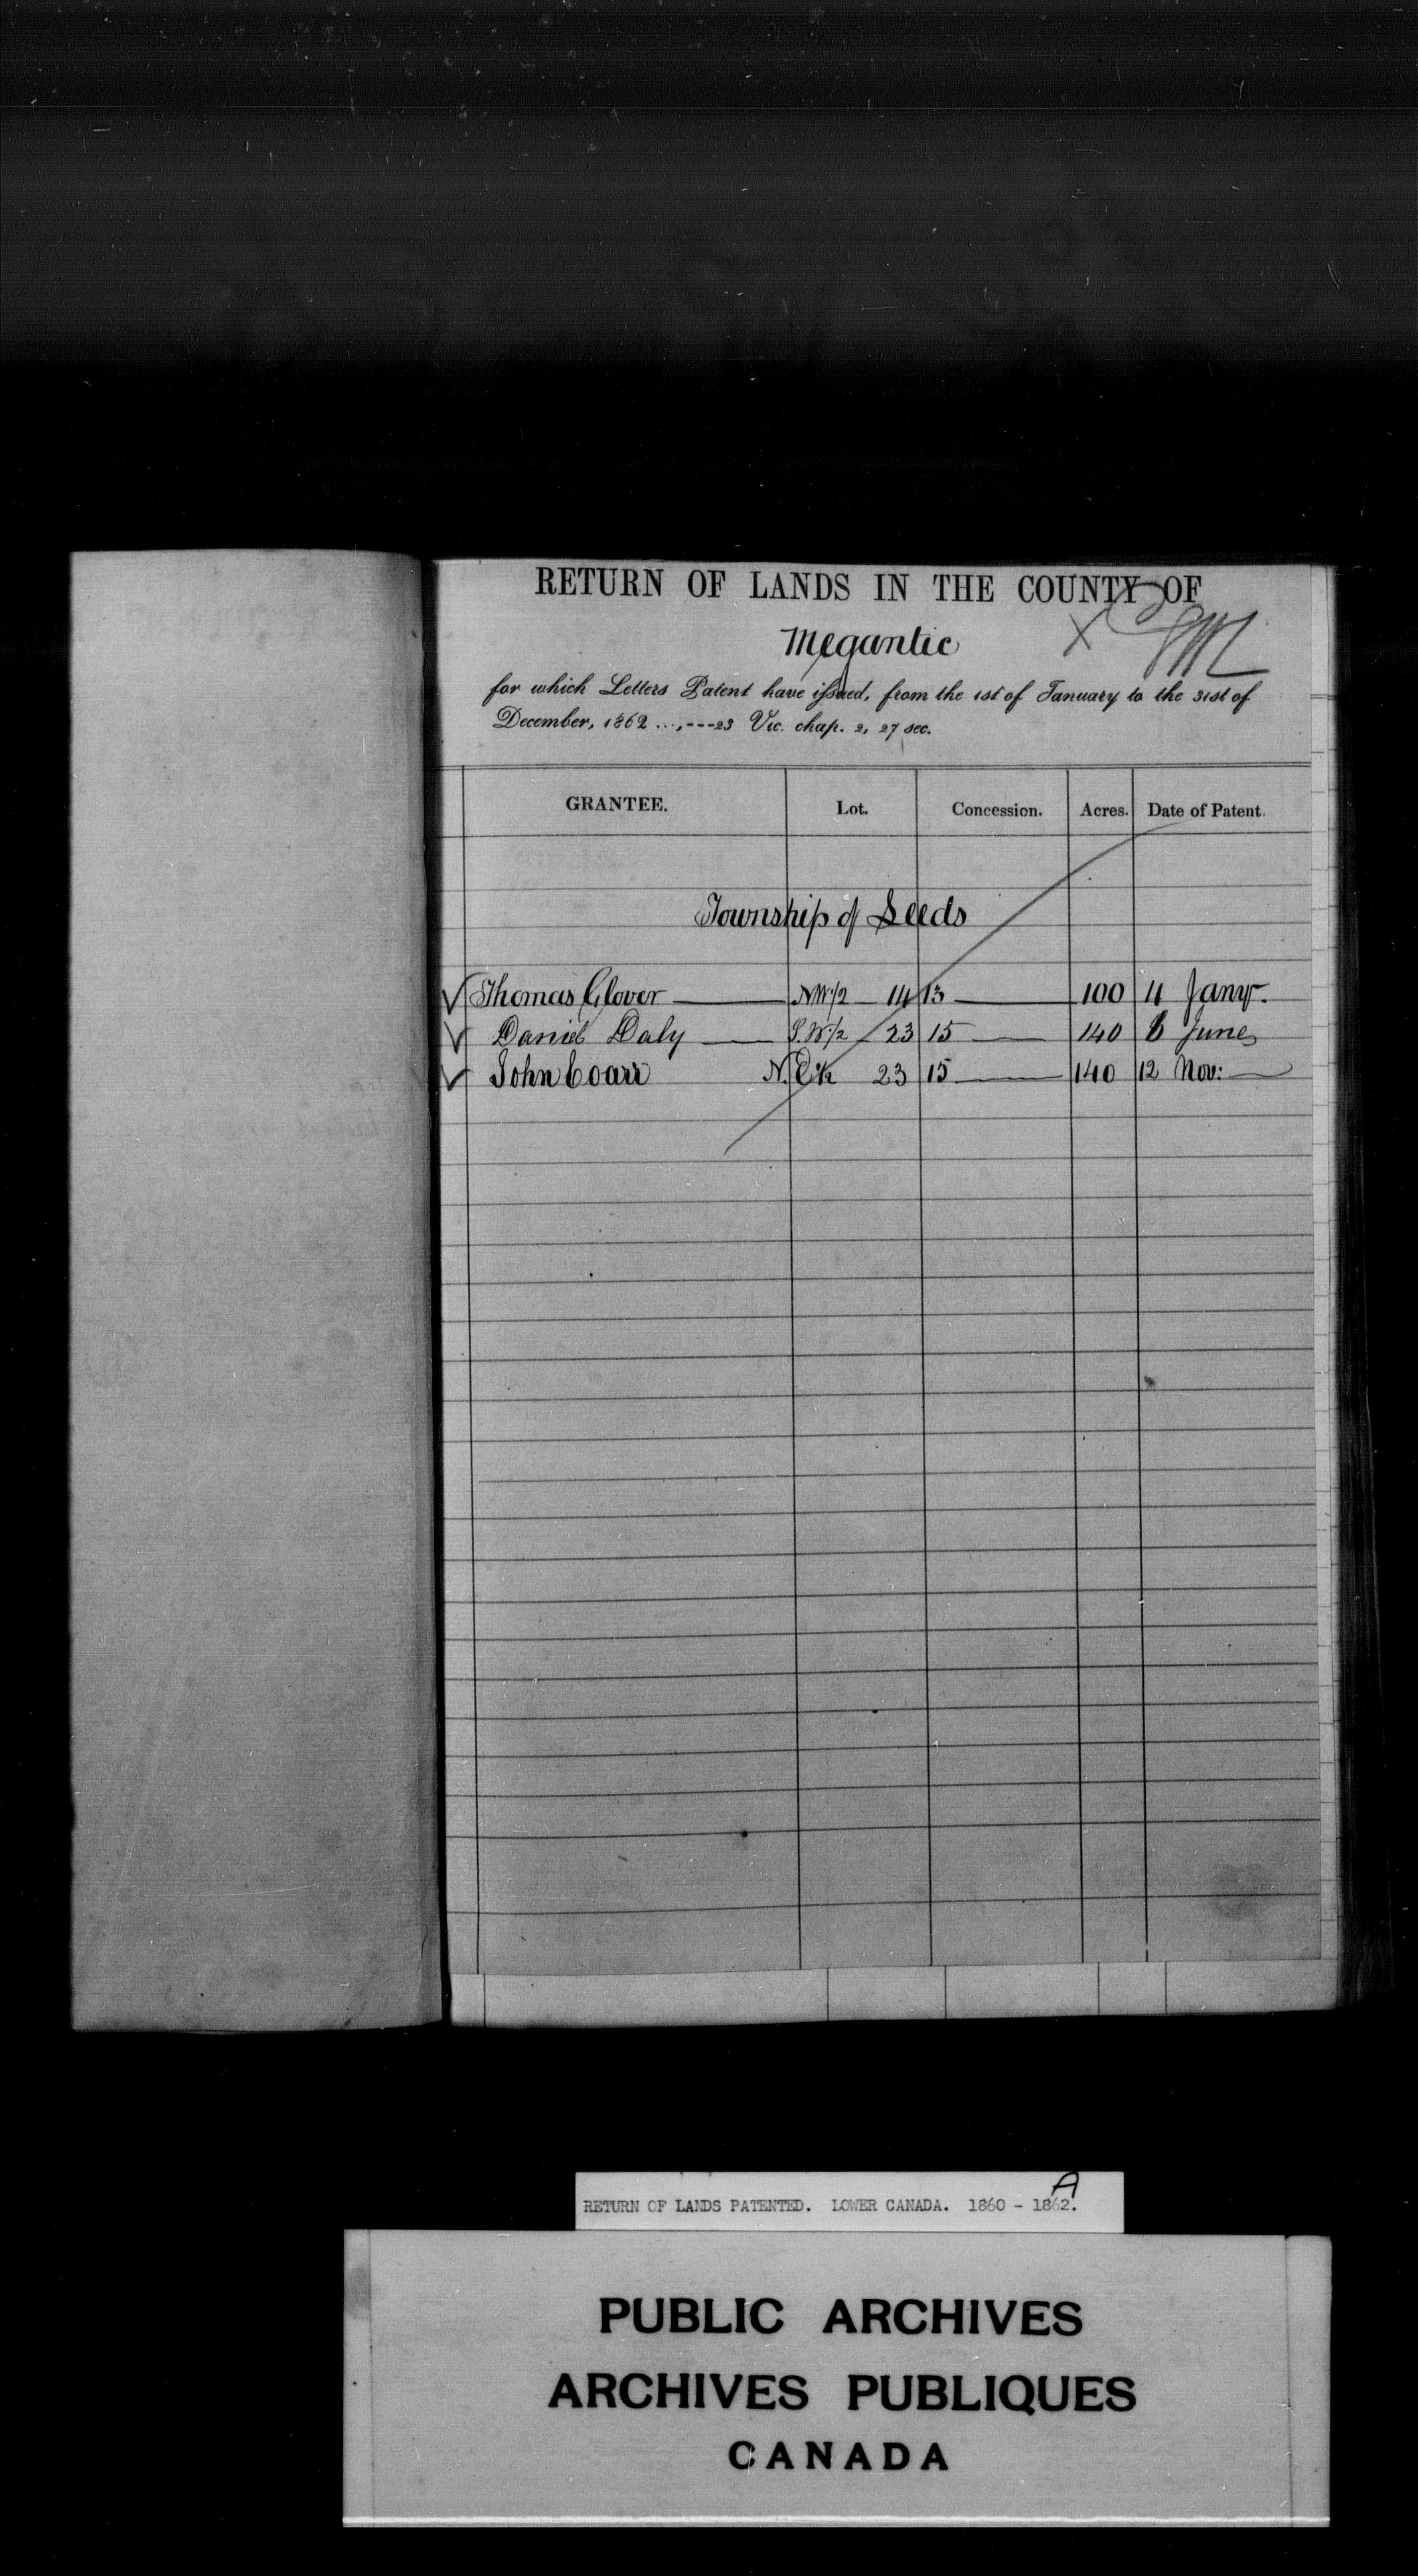 RETURN OF LANDS IN THE COUNTY OF
Megantic
X
for which Letters Patent have issued, from the 1st of January to the 31st of
December, 1862 ...,---23 Vic. chap. 2, 27 sec.
GRANTEE. Lot. Concession. Acres. Date of Patent.
Township of Leeds
Thomas Glover NW 1/2 14 13 100 4 Jany.
Daniel Daly S.W 1/2 23 15 140 6 June
John Coarr N.E 1/2 23 15 140 12 Nov:
A
RETURN OF LANDS PATENTED. LOWER CANADA. 1860 - 1862.
PUBLIC ARCHIVES
ARCHIVES PUBLIQUES
CANADA